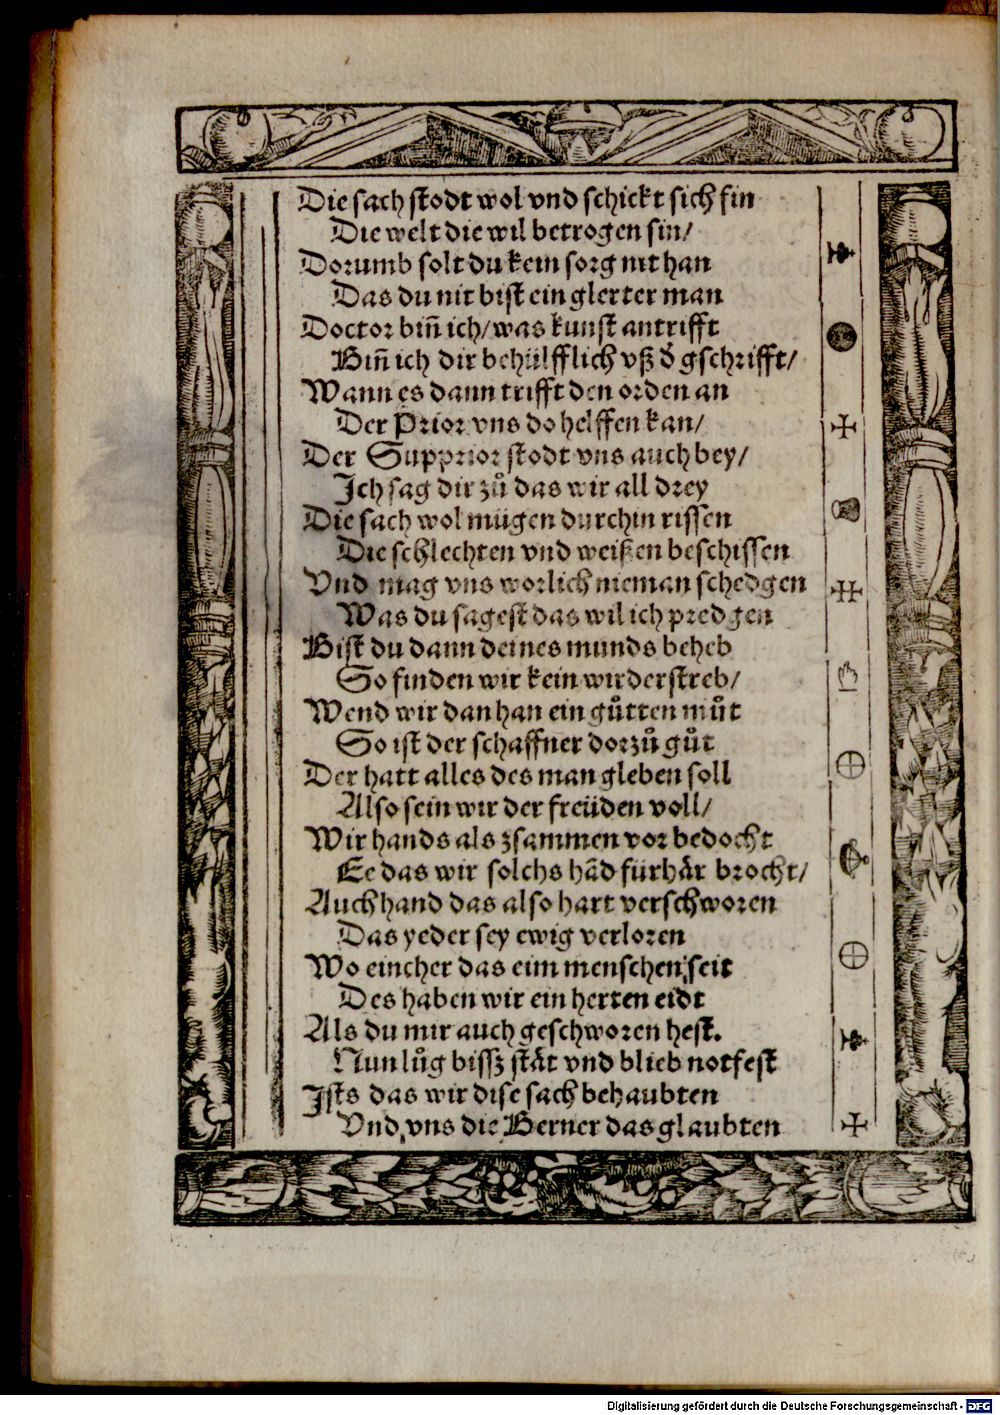 Die sach stodt wol vnd schickt sich fin
Die welt die wil betrogen sin/
Dorumb solt du kein sorg nit han
Das du nit bist ein glerter man
Doctor biñ ich/was kunst antrifft
Biñ ich dir behülfflich vß d̕ gschrifft/
Wann es dann trifft den orden an
Der Prior vns do helffen kan/
Der Supprior stodt vns auch bey/
Ich sag dir zů das wir all drey
Die sach wol mügen durchin rissen
Die schlechten vnd weißen beschissen
Vnd mag vns worlich nieman schedgen
Was du sagest das wil ich predgen
Bist du dann deines munds beheb
So finden wir kein wirderstreb/
Wend wir dan han ein gůtten můt
So ist der schaffner dorzů gůt
Der hatt alles des man gleben soll
Also sein wir der freüden voll/
Wir hands als zsammen vor bedocht
Ee das wir solchs hãd fürhår brocht/
Auch hand das also hart verschworen
Das yeder sey ewig verloren
Wo eincher das eim menschen seit
Des haben wir ein herten eidt
Als du mir auch geschworen hest.
Nun lůg bissz ståt vnd blieb notfest
Ists das wir dise sach behaubten
Vnd vns die Berner das glaubten
Digitalisierung gefördert durch die Deutsche Forschungsgemeinschaft - DFG